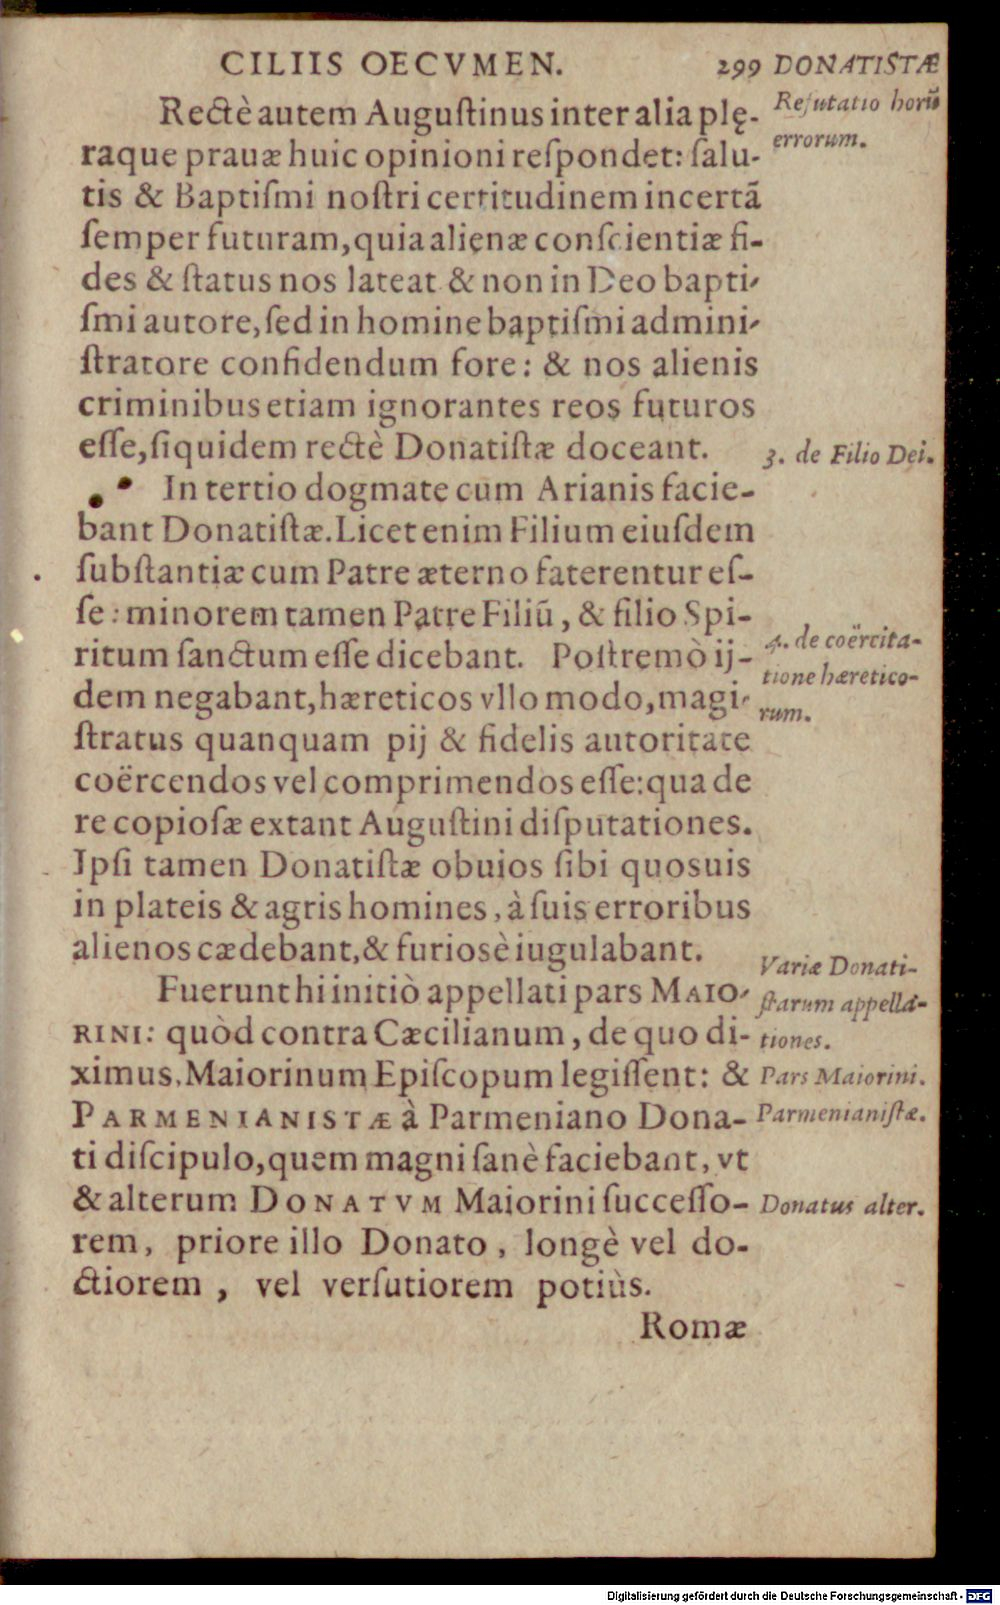 CILIIS OECVMEN. 299 DONATISTÆ
Refutatio horũ
errorum.
Rectè autem Auguſtinus inter alia plę-
raque prauæ huic opinioni reſpondet: ſalu-
tis & Baptiſmi noſtri certitudinem incertã
ſemper futuram, quia alienæ conſcientiæ fi-
des & ſtatus nos lateat & non in Deo bapti-
ſmi autore, ſed in homine baptiſmi admini-
ſtratore confidendum fore: & nos alienis
criminibus etiam ignorantes reos futuros
eſſe, ſiquidem rectè Donatiſtæ doceant.
3. de Filio Dei.
In tertio dogmate cum Arianis facie-
bant Donatiſtæ. Licet enim Filium eiuſdem
ſubſtantiæ cum Patre æterno faterentur eſ-
ſe: minorem tamen Patre Filiũ, & filio Spi-
ritum ſanctum eſſe dicebant. Poſtremò ij-
dem negabant, hæreticos vllo modo, magi-
ſtratus quanquam pij & fidelis autoritate
coërcendos vel comprimendos eſſe: qua de
re copioſæ extant Auguſtini diſputationes.
Ipſi tamen Donatiſtæ obuios ſibi quosuis
in plateis & agris homines, à ſuis erroribus
alienos cædebant, & furioſè iugulabant.
4. de coërcita-
tione hæretico-
rum.
Fuerunt hi initiò appellati pars MAIO-
RINI: quòd contra Cæcilianum, de quo di-
ximus, Maiorinum Epiſcopum legiſſent: &
PARMENIANISTÆ à Parmeniano Dona-
ti diſcipulo, quem magni ſanè faciebant, vt
& alterum DONATVM Maiorini ſucceſſo-
rem, priore illo Donato, longè vel do-
ctiorem, vel verſutiorem potiùs.
Variæ Donati-
ſtarum appella-
tiones.
Pars Maiorini.
Parmenianiſtæ.
Donatus alter.
Romæ
Digitalisierung gefördert durch die Deutsche Forschungsgemeinschaft - DFG